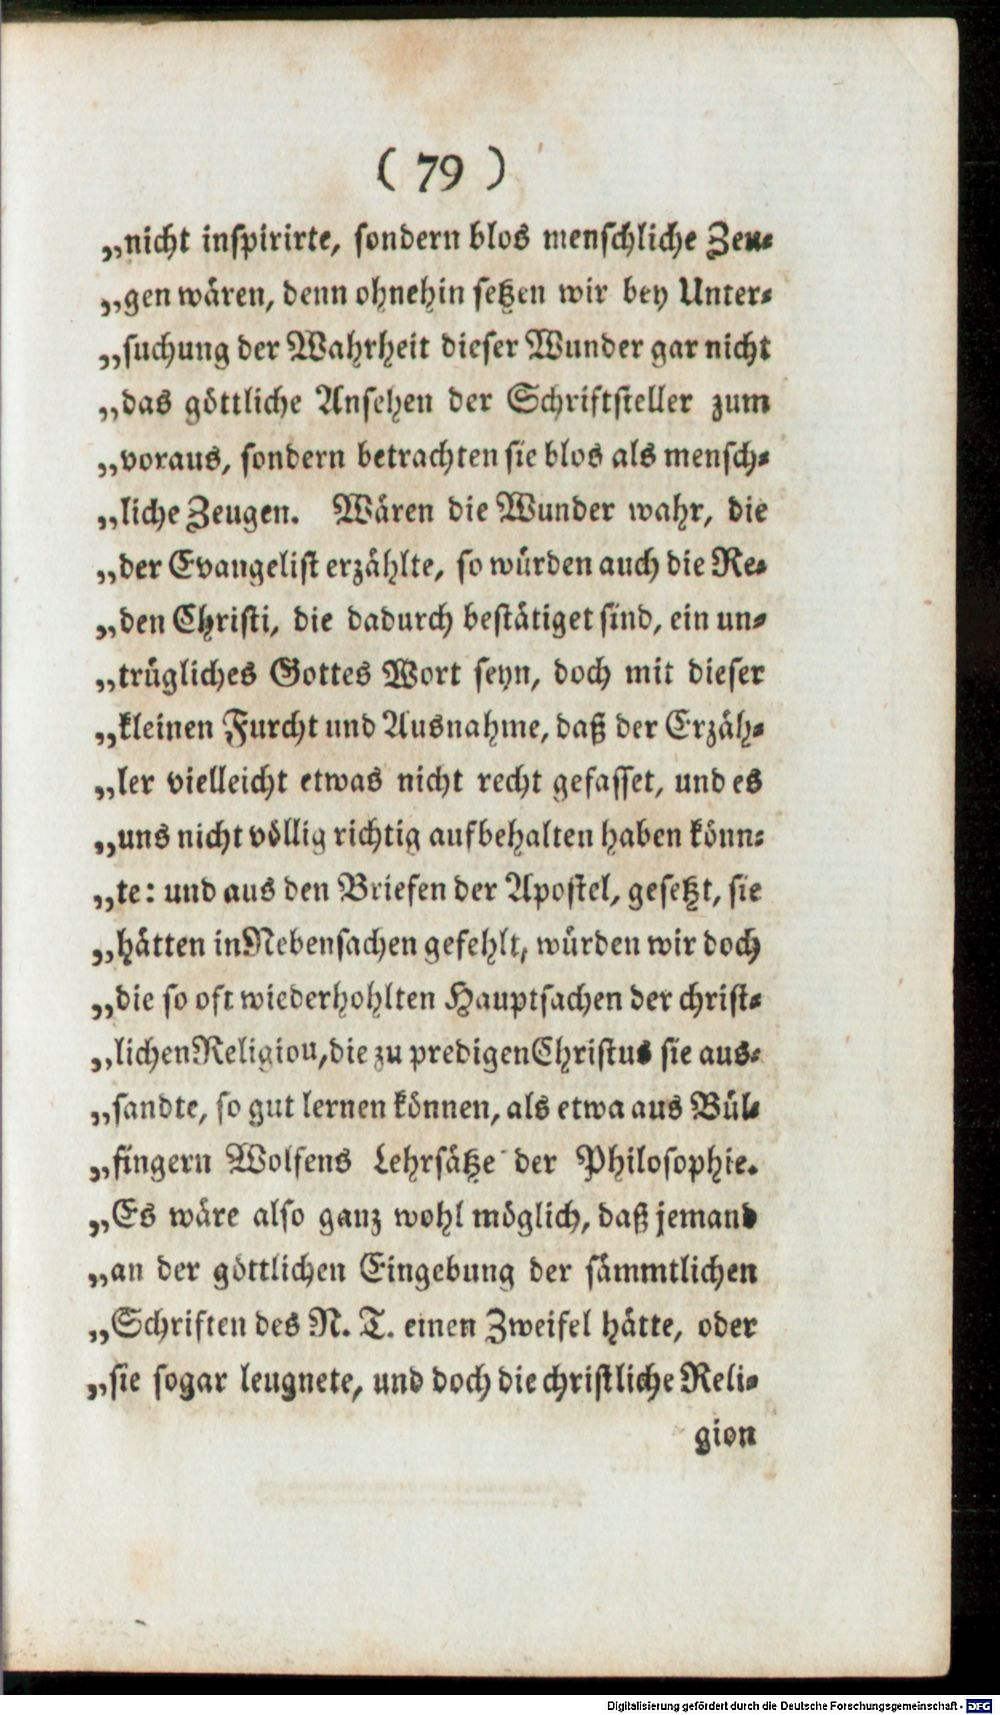 ( 79 )
„nicht inspirirte, sondern blos menschliche Zeu-
„gen wären, denn ohnehin setzen wir bey Unter-
„suchung der Wahrheit dieser Wunder gar nicht
„das göttliche Ansehen der Schriftsteller zum
„voraus, sondern betrachten sie blos als mensch-
„liche Zeugen. Wären die Wunder wahr, die
„der Evangelist erzählte, so würden auch die Re-
„den Christi, die dadurch bestätiget sind, ein un-
„trügliches Gottes Wort seyn, doch mit dieser
„kleinen Furcht und Ausnahme, daß der Erzäh-
„ler vielleicht etwas nicht recht gefasset, und es
„uns nicht völlig richtig aufbehalten haben könn-
„te: und aus den Briefen der Apostel, gesetzt, sie
„hätten in Nebensachen gefehlt, würden wir doch
„die so oft wiederhohlten Hauptsachen der christ-
„lichen Religiou, die zu predigen Christus sie aus-
„sandte, so gut lernen können, als etwa aus Bül-
„fingern Wolfens Lehrsätze der Philosophie.
„Es wäre also ganz wohl möglich, daß jemand
„an der göttlichen Eingebung der sämmtlichen
„Schriften des N. T. einen Zweifel hätte, oder
„sie sogar leugnete, und doch die christliche Reli-
gion
Digitalisierung gefördert durch die Deutsche Forschungsgemeinschaft - DFG